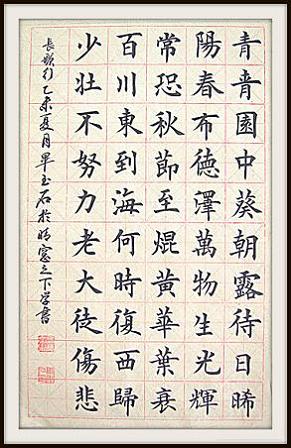 青青園中葵朝露待日晞
陽春布德澤萬物生光輝
常恐秋節至焜黃華葉衰
百川東到海何時復西歸
少壮不努力老大徒傷悲
長歌行乙未夏月畢玉石於晴窓之下学書